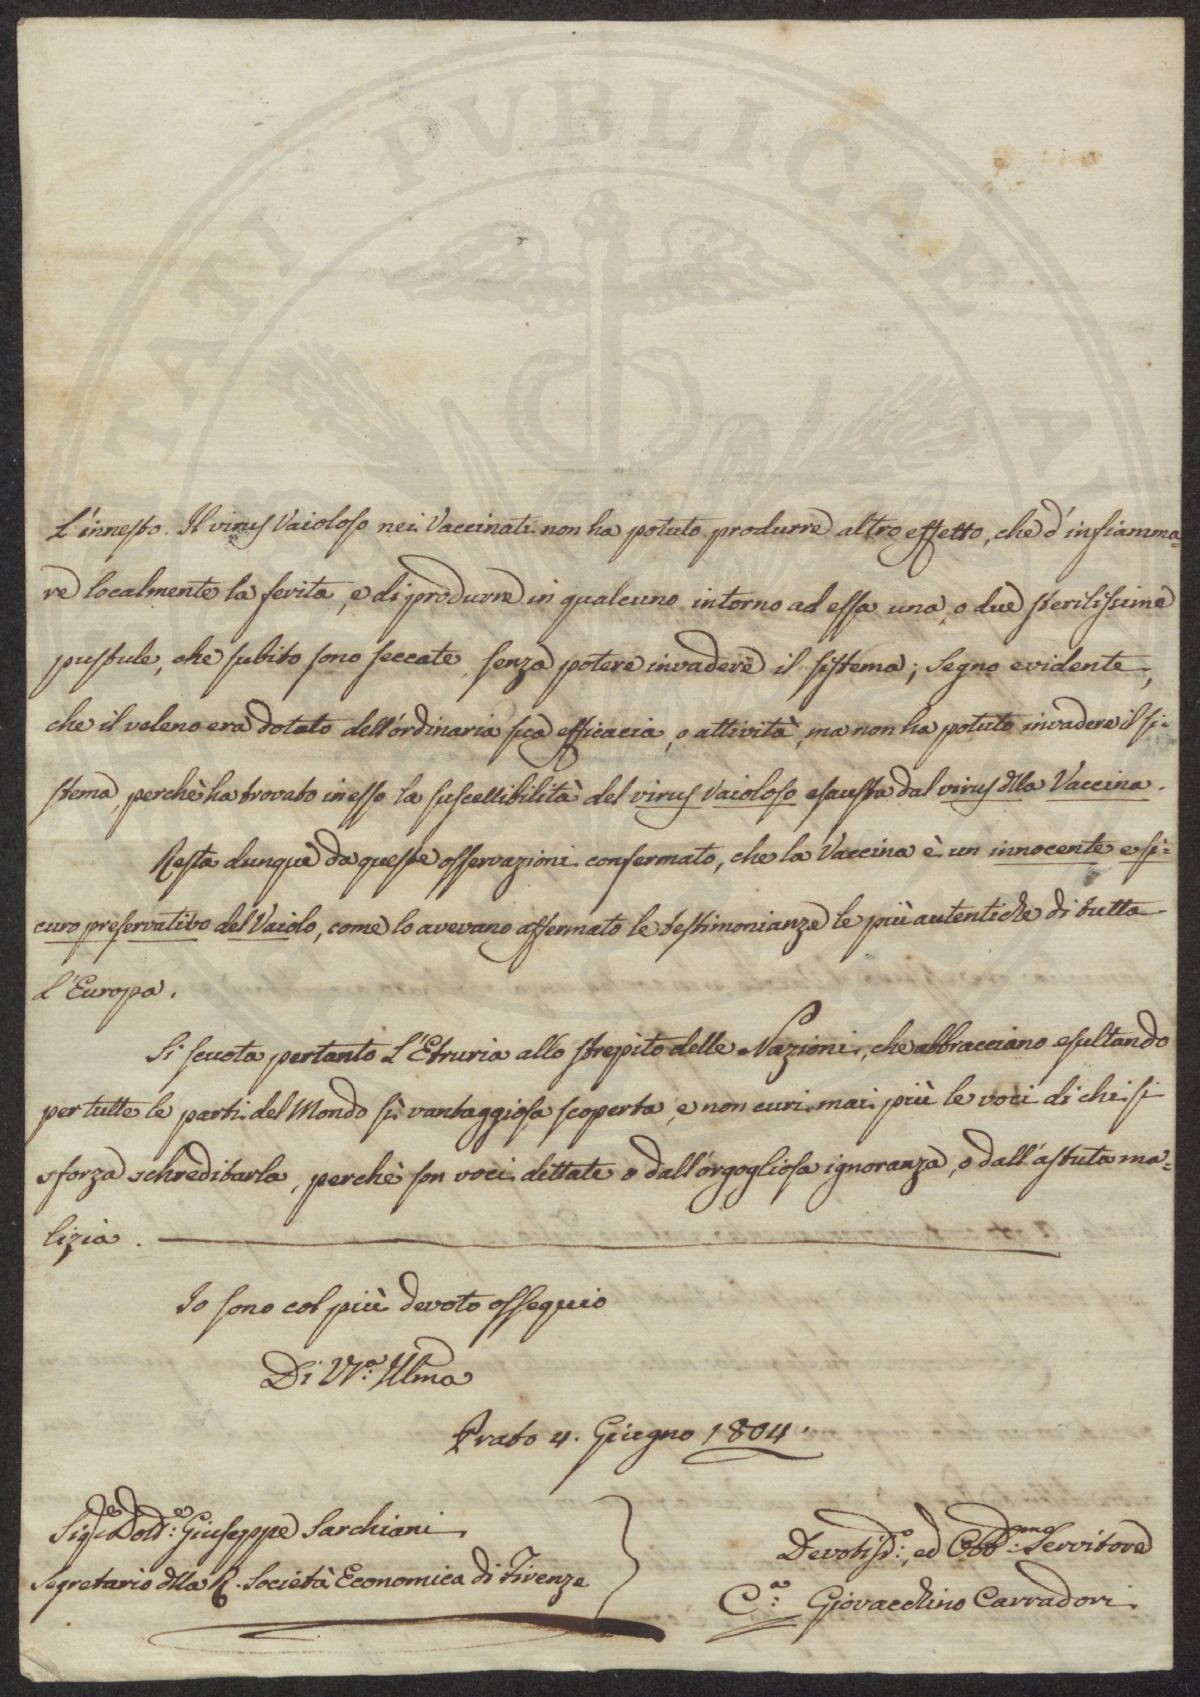 UTILITATI PUBLICAE AU
L'innesto. Il virus Vaioloso nei Vaccinati non ha potuto produrre altro effetto, che d'infiamma=
re localmente la ferita, e di produrre in qualcuno intorno ad essa una, o due sterilissime
pustule, che subito sono seccate, senza potere invadere il sistema; segno evidente,
che il veleno era dotato dell'ordinaria sua efficacia, o attività, ma non ha potuto invadere il si=
stema, perchè ha trovato in esso la suscettibilità del virus Vaioloso esausta dal virus dlla Vaccina.
Resta dunque da queste osservazioni confermato, che la Vaccina è un innocente e si=
curo preservativo del Vaiolo, come lo avevano affermato le testimonianze le più autentiche di tutta
L'Europa.
Si scuota pertanto L'Etruria allo strepito delle Nazioni, che abbracciano esultando
per tutte le parti del Mondo sì vantaggiosa scoperta, e non curi mai più le voci di chi si
sforza schreditarla, perchè son voci dettate o dall'orgogliosa ignoranza, o dall'astuta ma=
lizia.
Io sono col più devoto ossequio
Di Vra. Illma
Prato 4. Giugno 1804.
Sigre Dottre: Giuseppe Sarchiani
Segretario dlla R. Società Economica di Firenze
Devotiso:, ed Obbmo: Servitore
Giovacchino Carradori.